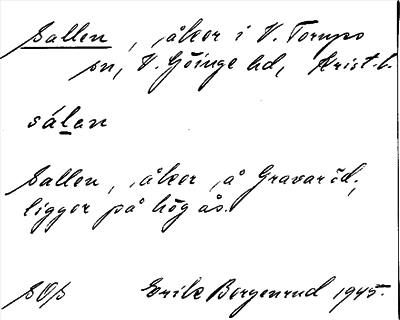 Sallen, åker i V. Torups
sn, V. Göinge hd, Krist. l.
sálan
Sallen, åker å Gravaröd,
ligger på hög ås.
SOS Erik Borgenrud 1945.